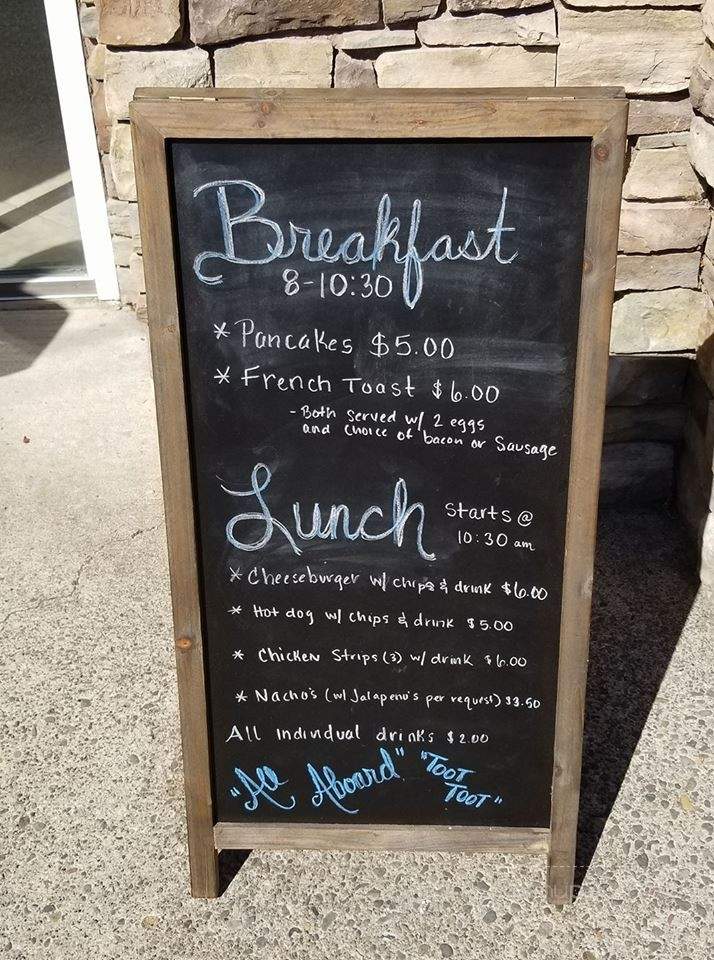 Breakfast
8-10:30
* Pancakes $5.00
* French Toast $6.00
- Both Served w/ 2 eggs
and choice of bacon or Sausage
Lunch
Starts @
10:30 am
* Cheeseburger w/ chips & drink $6.00
* Hot dog w/ chips & drink $5.00
* Chicken Strips (3) w/ drink $6.00
* Nacho's (w/ Jalapeno's per request) $3.50
All Individual drinks $2.00
"All Aboard" "Toot
Toot"